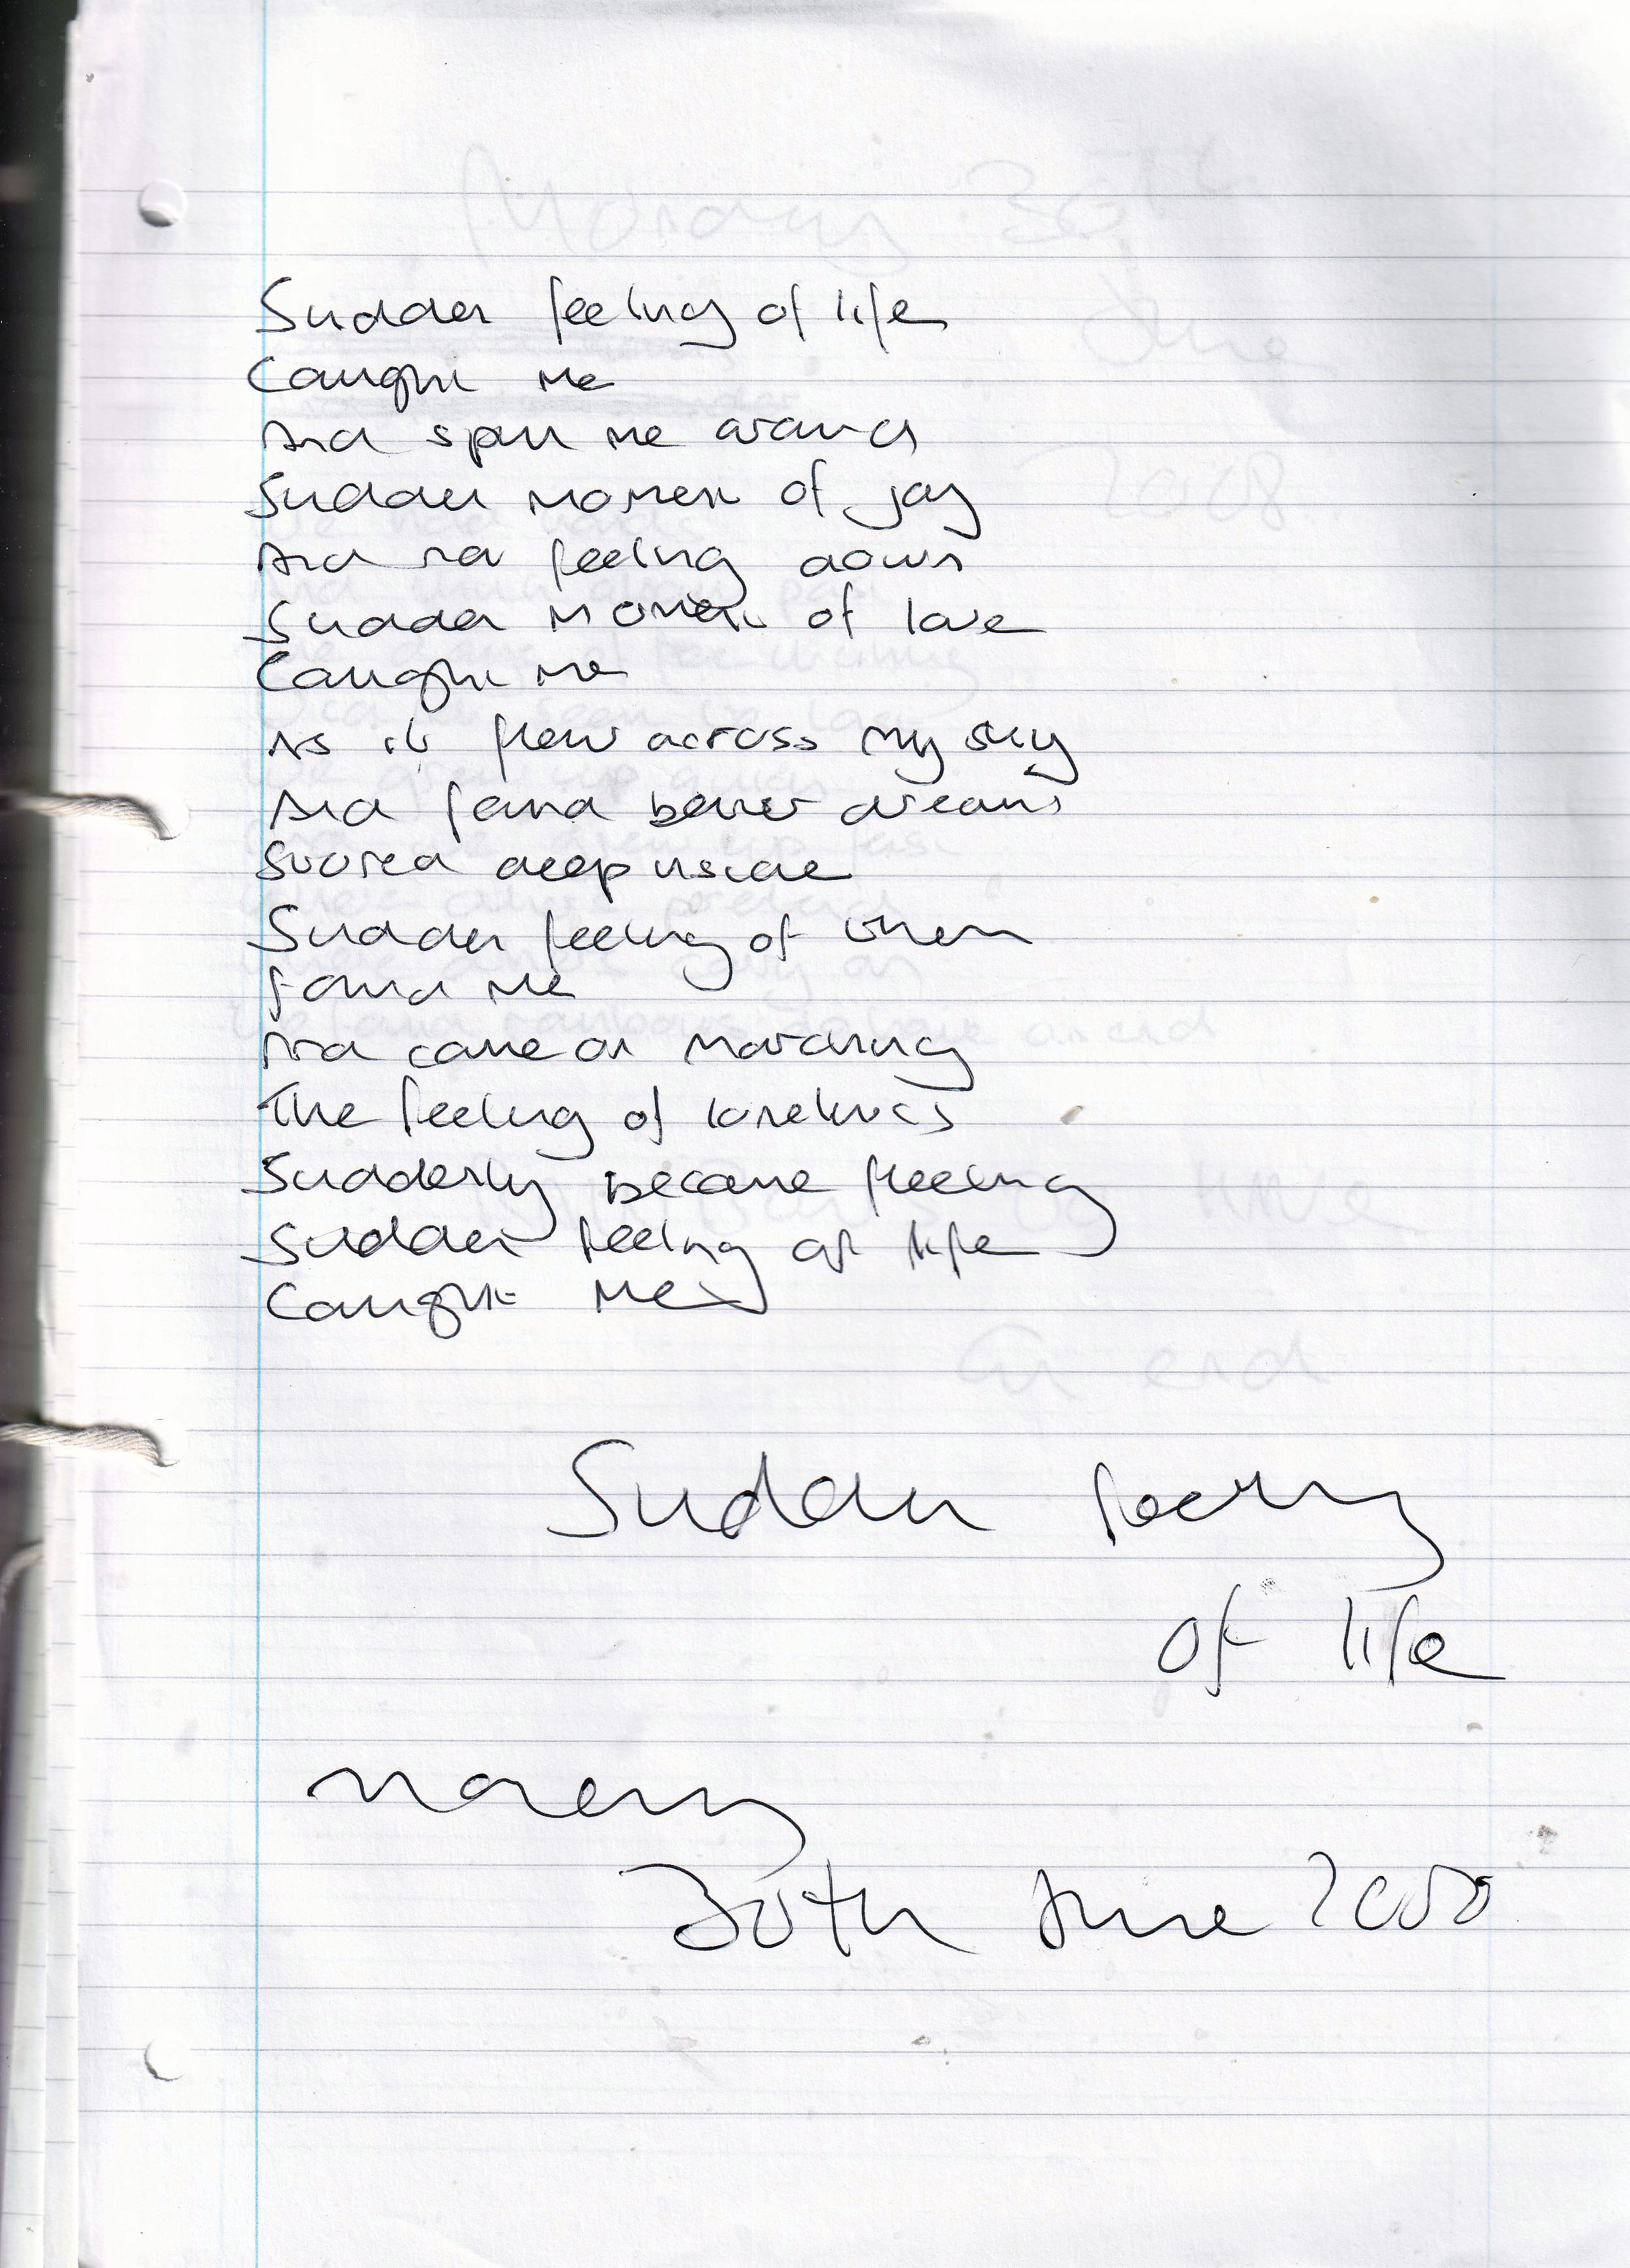 Sudden feeling of life
Caught me
And spun me around
Sudden moment of joy
And no feeling down
Sudden moment of love
Caught me
As it flew across my sky
And found better dreams
Stored deep inside
Sudden feeling of when
Found me
And came on marching
The feeling of loneliness
Suddenly became fleeting
Sudden feeling of life
Caught me
Sudden feeling
of life
30th June 2008